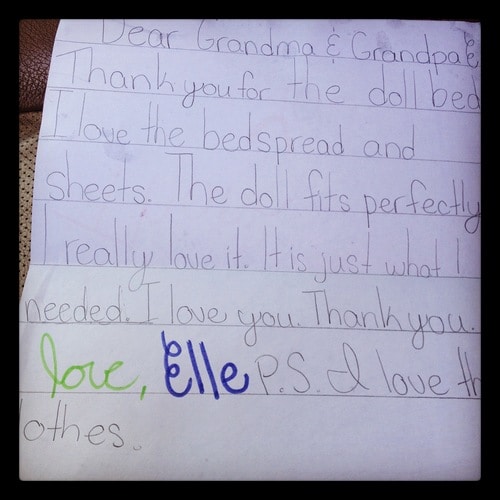 Dear Grandma & Grandpa
Thank you for the doll bed
I love the bedspread and
sheets. The doll fits perfectly
I really love it. It is just what I
needed. I love you. Thank you.
love, Elle P.S. I love th
lothes.